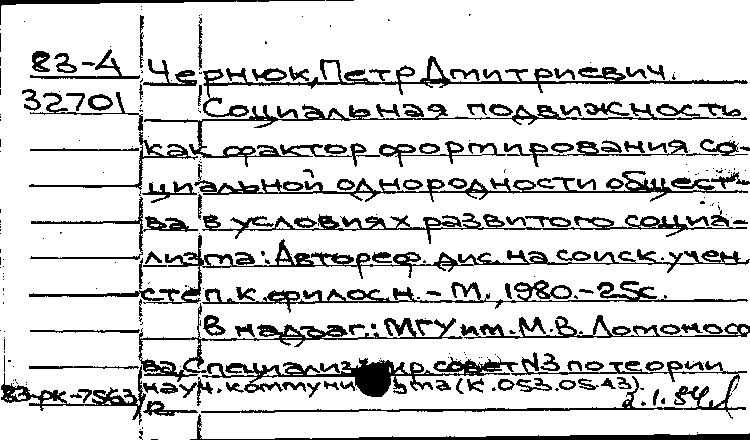 83-А Чернюк, Петр Дмитриевич.
32701 Социальная подвижность
как фактор формирования со-
циальной однородности общест-
ва в условиях развитого социа-
лизма: Автореф. дис. на соиск. учен.
степ. к. филос. н. - М., 1980. - 25с.
В надзаг.: МГУ им. М.В. Ломоносо
ва, Специализ. совет N3 по теории
науч. коммуни ма (К.053.05.43)
83-рк-7563